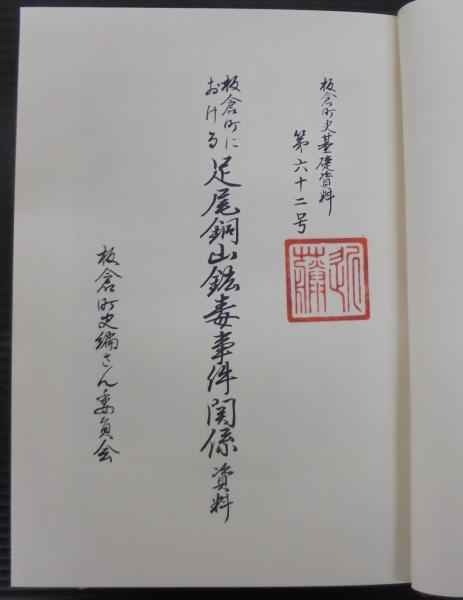 板倉町史基礎資料
第六十二号
板倉町に
おける
足尾銅山鉱毒事件関係資料
板倉町史編さん委員会